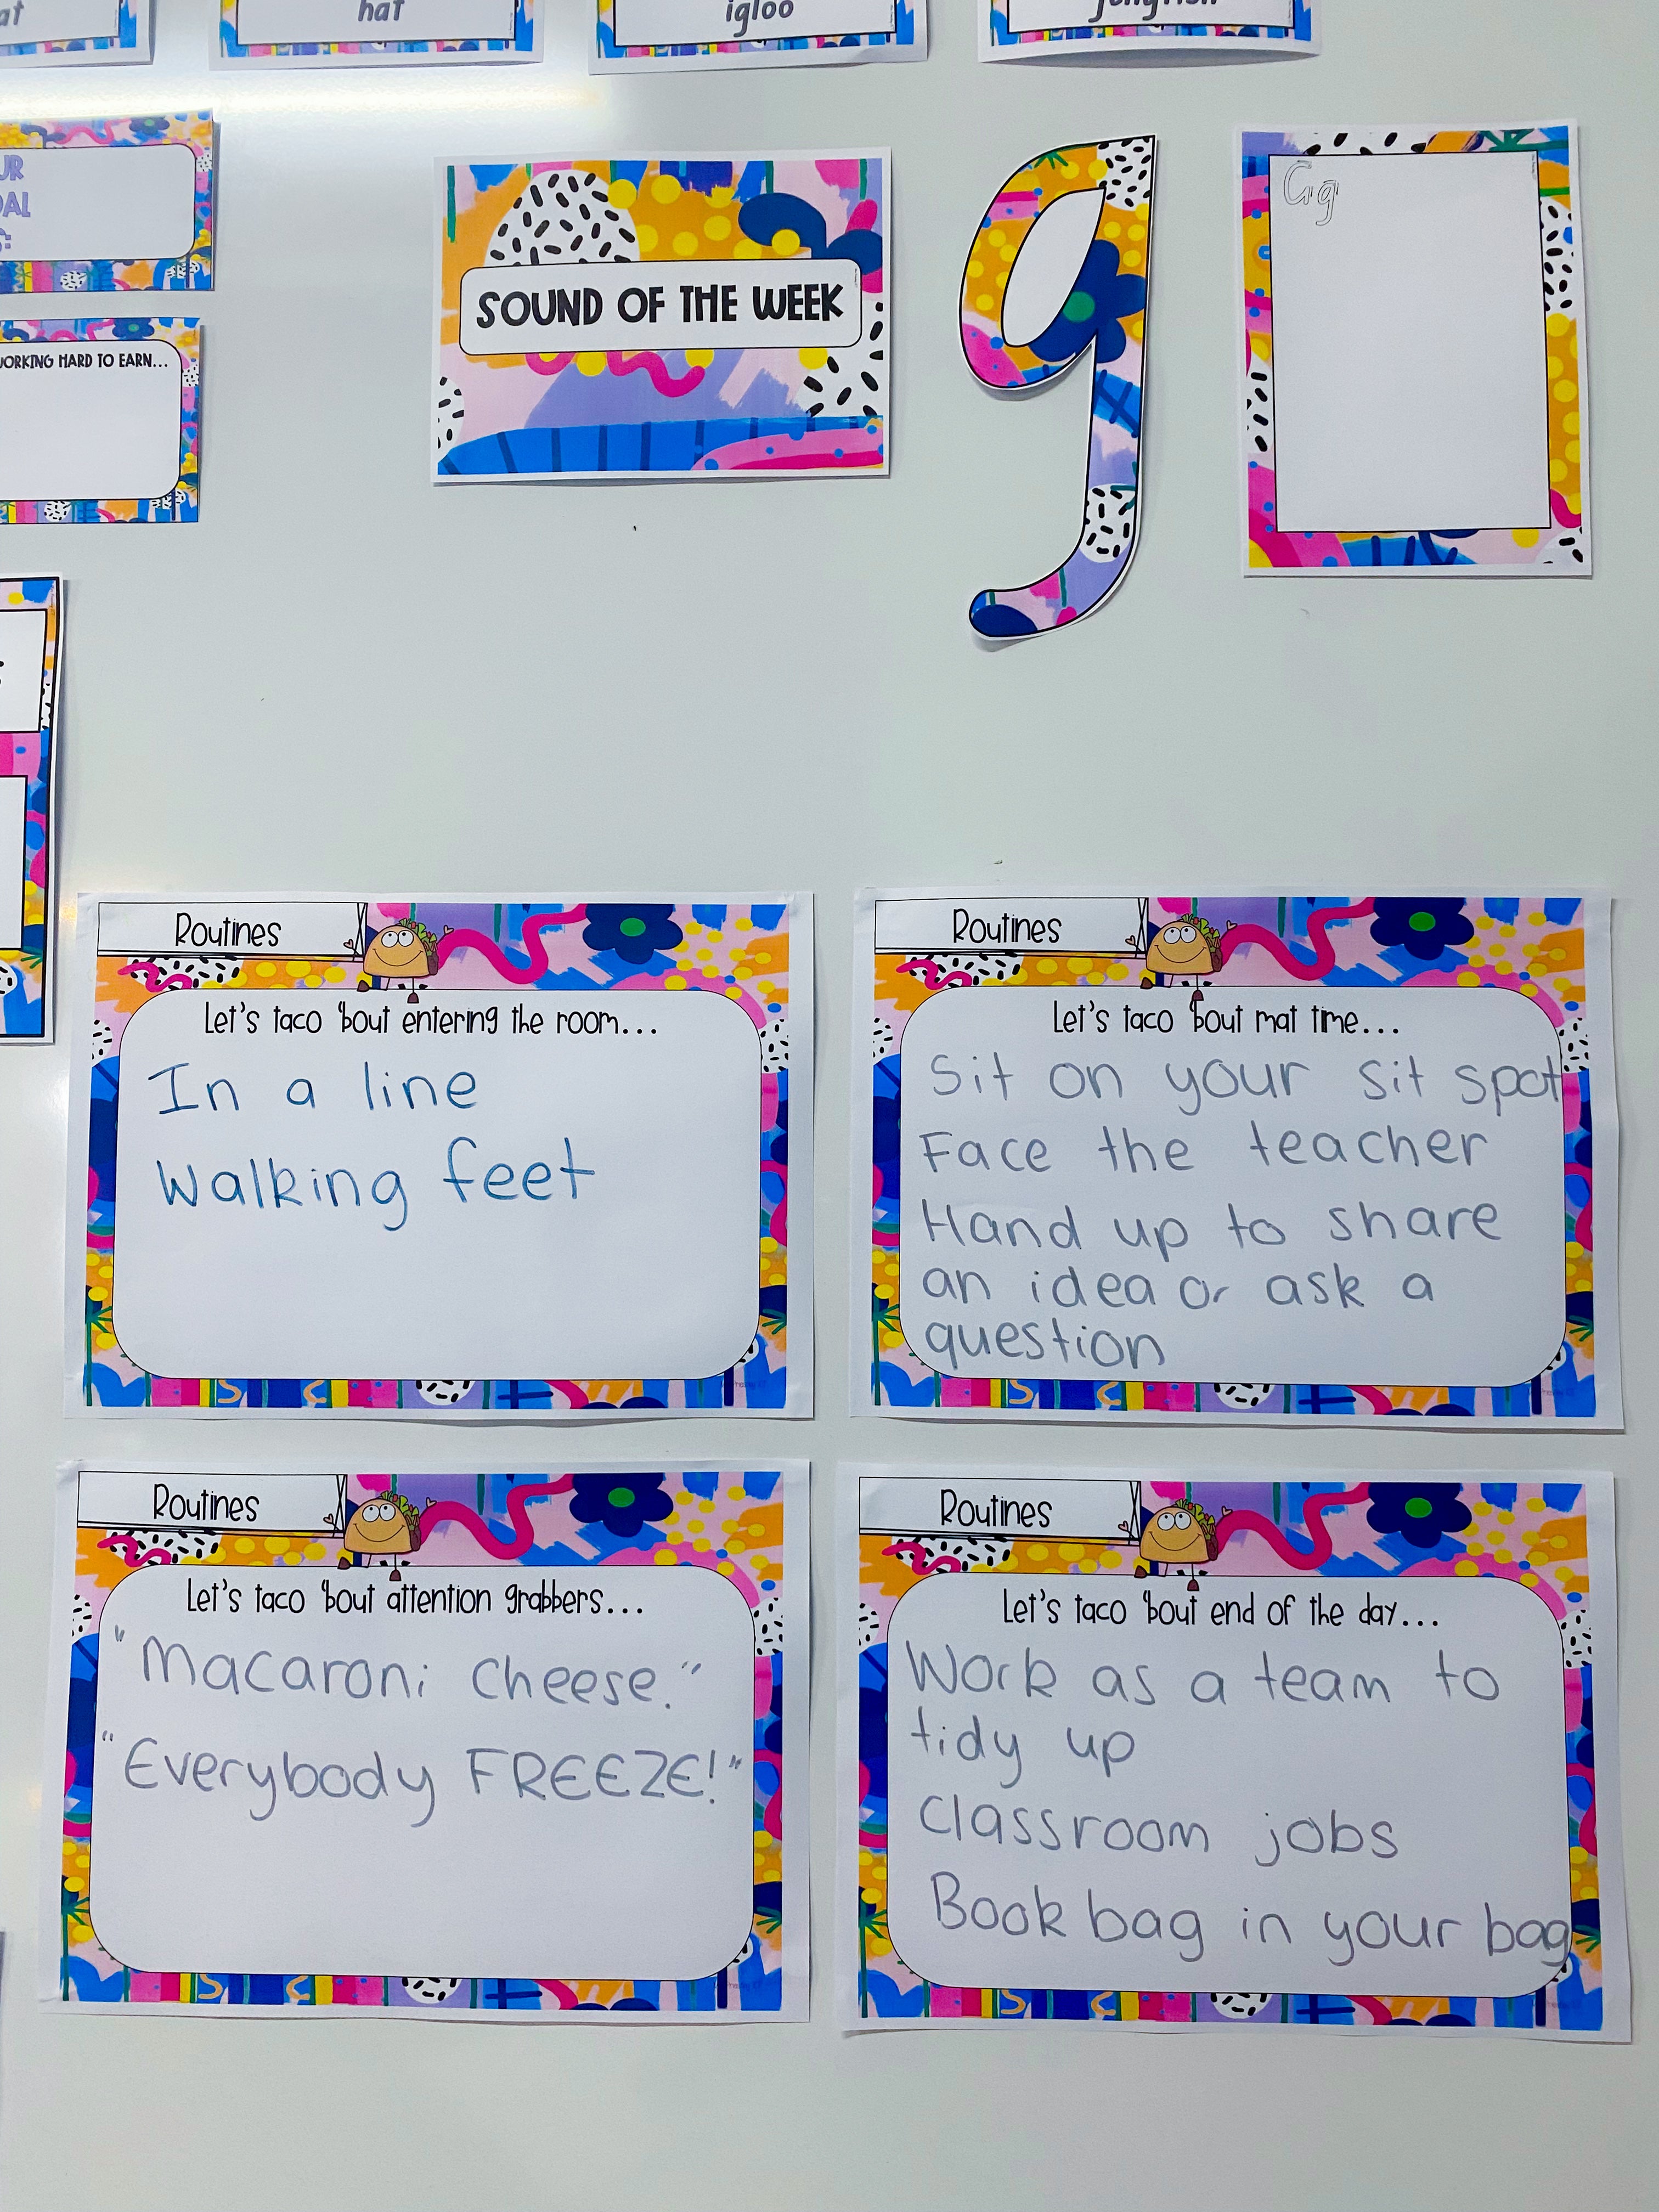 hat
igloo
SOUND OF THE WEEK
g
Gg
WORKING HARD TO EARN...
Routines
Let's taco 'bout entering the room...
In a line
Walking feet
Routines
Let's taco 'bout mat time...
Sit on your sit spot
Face the teacher
Hand up to share
an idea or ask a
question
Routines
Let's taco 'bout attention grabbers...
"Macaroni cheese."
"Everybody FREEZE!"
Routines
Let's taco 'bout end of the day...
Work as a team to
tidy up
Classroom jobs
Book bag in your bag